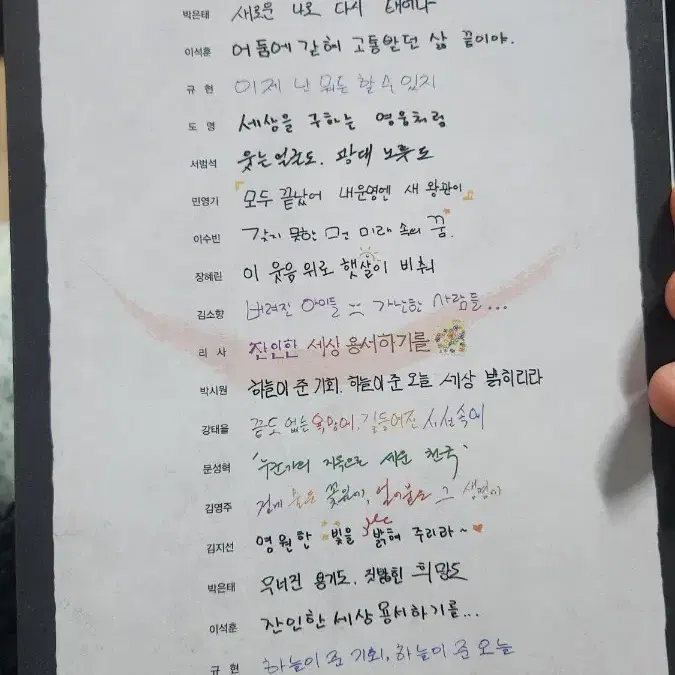 박은태 새로운 나로 다시 태어나
이석훈 어둠에 갇혀 고통받던 삶 끝이야.
규현 이제 난 뭐든 할 수 있지
도영 세상을 구하는 영웅처럼
서범석 웃는 얼굴도. 광대 노릇도
민영기 모두 끝났어 내운명엔 새 왕관이
이수빈 갖지 못한 그건 미래 속의 꿈.
장혜린 이 웃음 위로 햇살이 비춰
김소향 버려진 아이들 가난한 사람들...
리사 잔인한 세상 용서하기를
박시원 하늘이 준 기회. 하늘이 준 오늘 세상 밝히리라
강태을 끝도 없는 욕망에, 길들여진 시선속에
문성혁 '누군가의 지옥으로 세운 천국'
김영주 겁게 물은 꽃잎이, 얼어붙은 그 생명이
김지선 영원한 빛을 밝혀 주리라~
박은태 무너진 용기도, 짓밟힌 희망도
이석훈 잔인한 세상 용서하기를...
규현 하늘이 준 기회, 하늘이 준 오늘